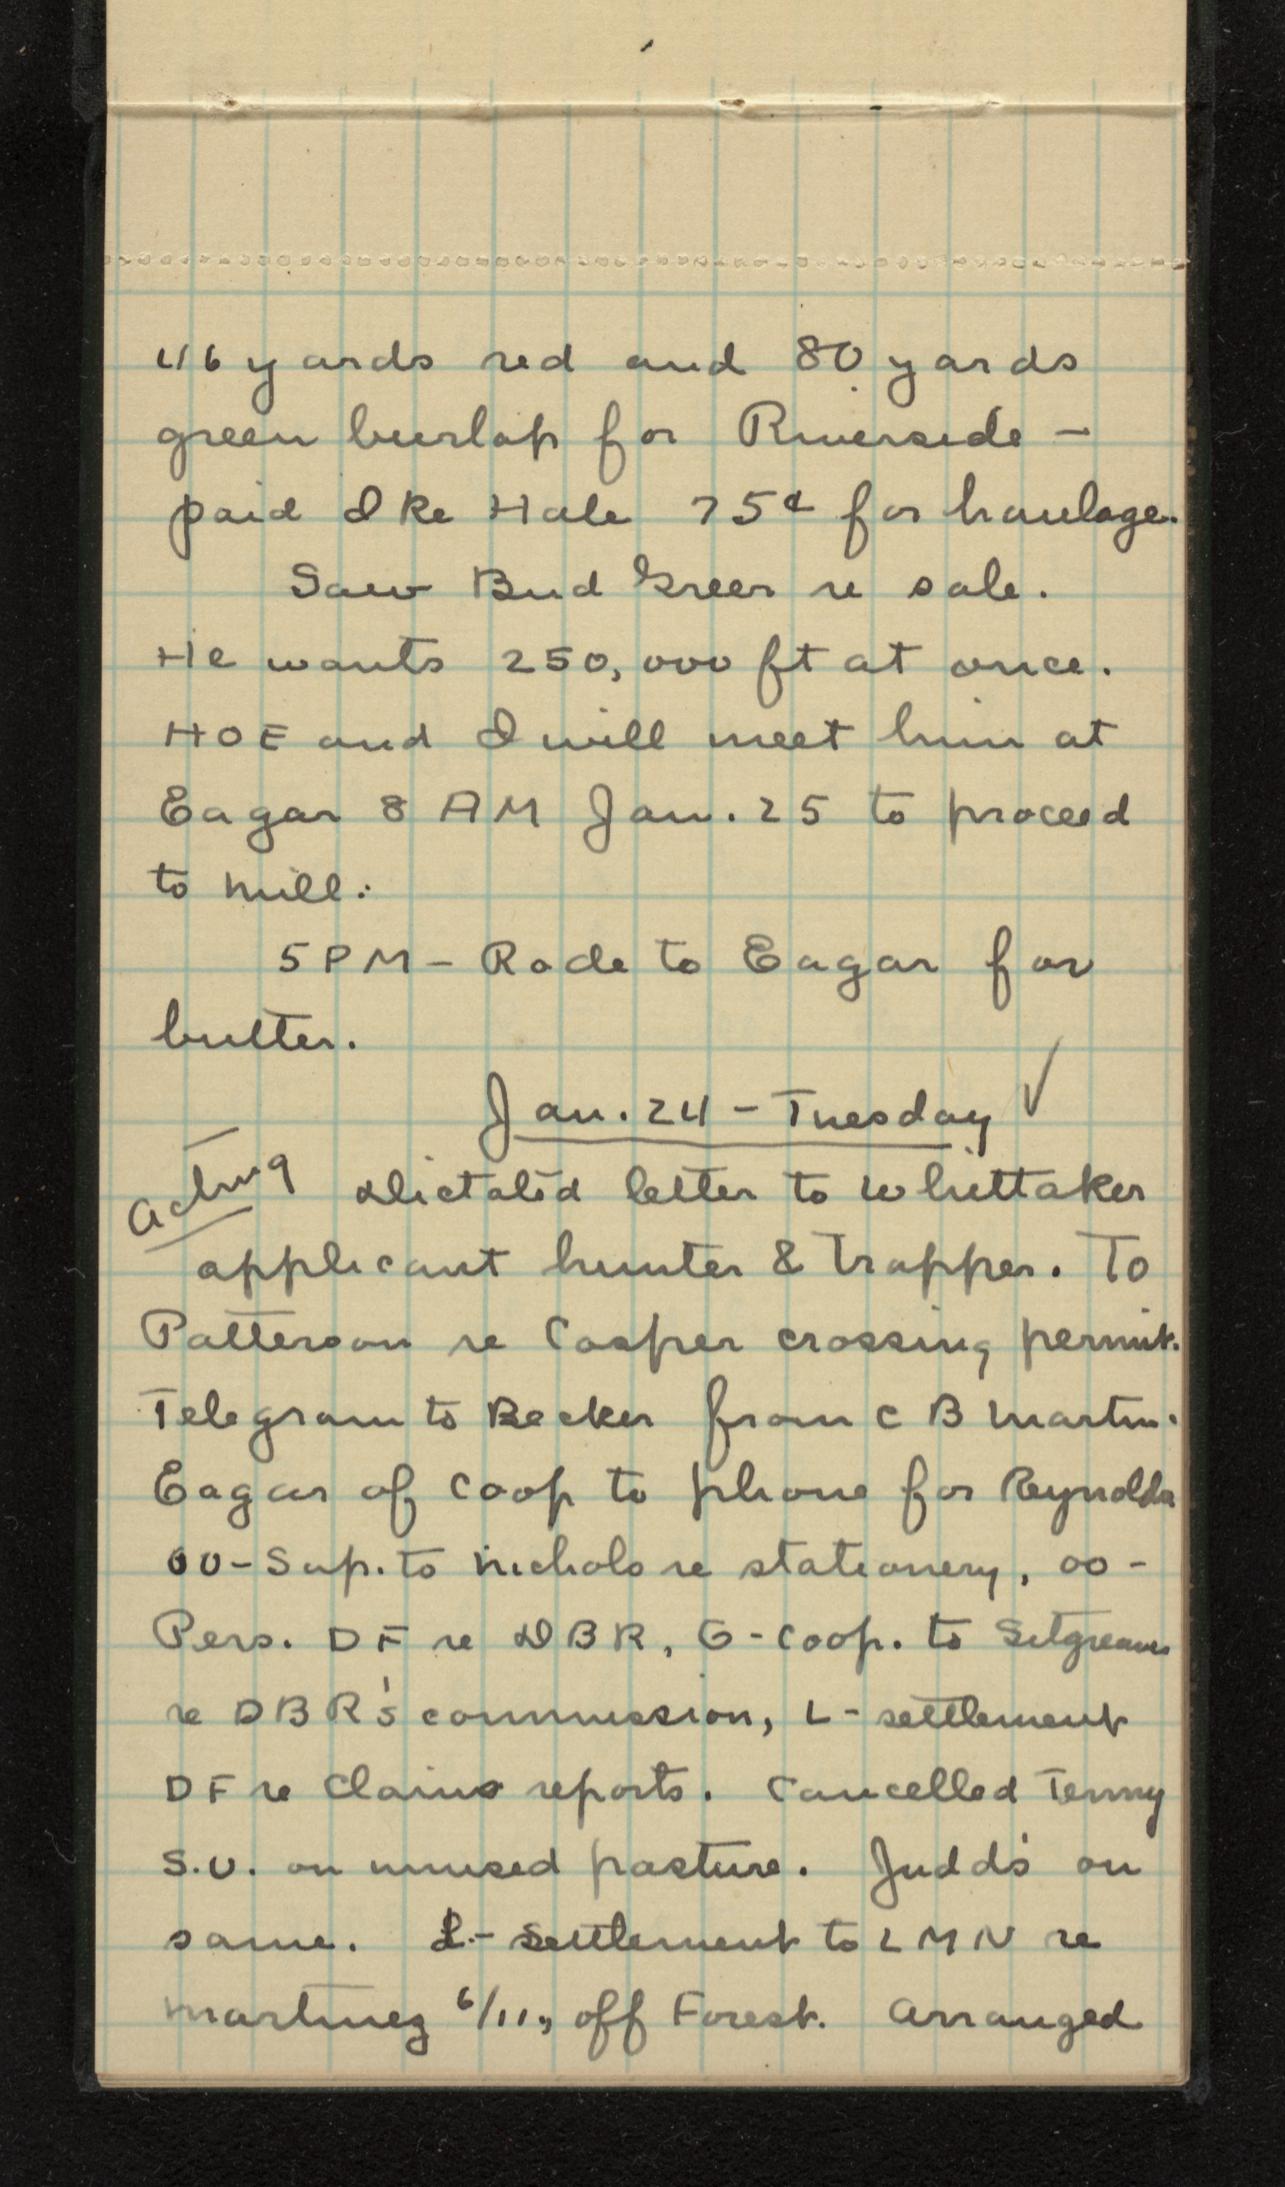 46 yards red and 80 yards
green burlap for Riverside -
paid Ike Hale 75¢ for haulage.
Saw Bud Greer re sale.
He wants 250,000 ft at once.
HOE and I will meet him at
Eagar 8 AM Jan. 25 to proceed
to mill.
5 PM - Rode to Eagar for
butter.
Jan. 24 - Tuesday ✓
Acting Dictated letter to Whittaker
applicant hunter & trapper. To
Patterson re Casper crossing permit.
Telegram to Becker from C B Martin.
Eagar of Coop to phone for Reynolds
OO-Sup. to Nichols re stationery, OO -
Pers. DF re DBR, G-Coop. to Sitgreaves
re DBR's commission, L - settlement
DF re Claims reports. Cancelled Tenny
S.U. on unused pasture. Judd's on
same. L - Settlement to LMN re
Martinez 6/11, off Forest. Arranged